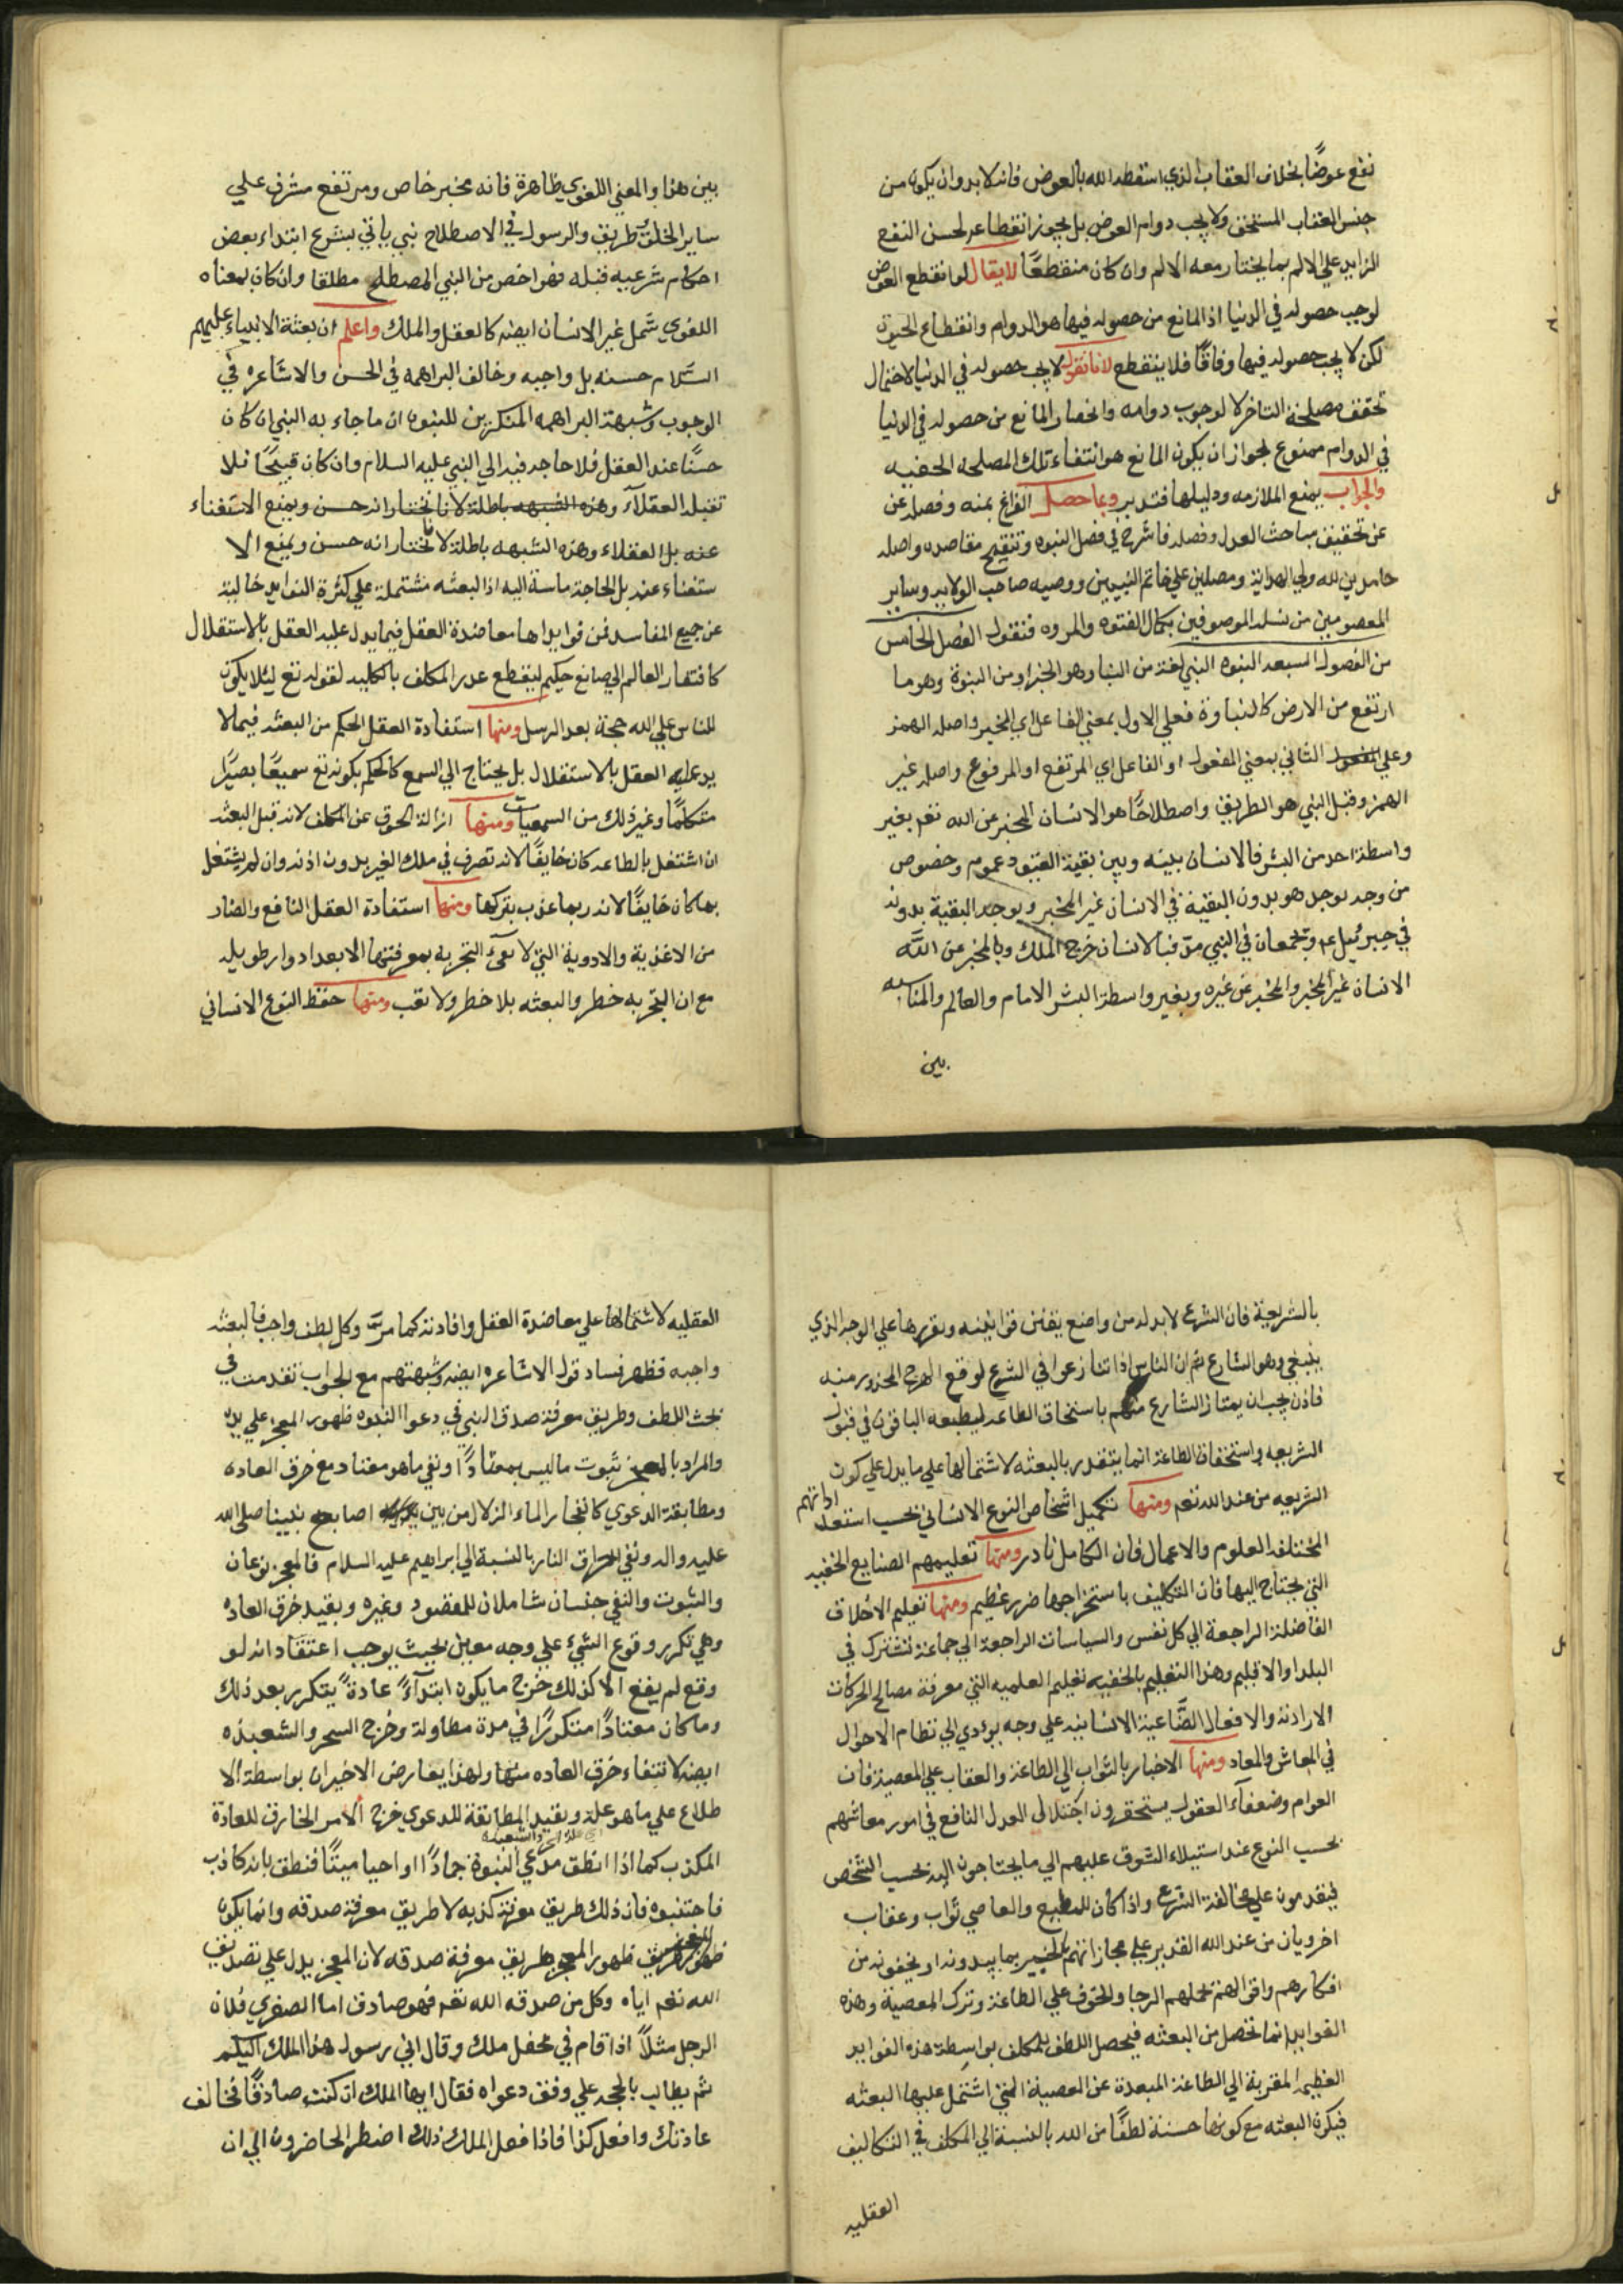 نفع عوضًا بخلاف العقاب الذي اسقطه الله بالعوض فانه لا بد وان يكون من
جنس العقاب المستحق ولا يجب دوام العوض بل يجوز انقطاعه لحسن النفع
الزايد علي الالم بما يختار معه الالم وان كان منقطعًا لا يقال لو انقطع العوض
لوجب حصوله في الدنيا اذ المانع من حصوله فيها هو الدوام وانقطاع الحيوة
لكن لا يجب حصوله فيها وفاقًا فلا ينقطع لانا نقول لا يجب حصوله في الدنيا لاحتمال
تحقق مصلحة التاخر لا لوجوب دوامه وانحصار المانع من حصوله في الدنيا
في الدوام ممنوع لجواز ان يكون المانع هو انتفاء تلك المصلحه الخفيه
والجواب يمنع الملازمه ودليلها فتدبر وبما حصل الفراغ بمنه وفصله عن
عن تحقيق مباحث العدل وفصله فاشرع في فصل النبوه وتنقيح مقاصده واصله
حامدين لله ولي الهداية ومصلين علي خاتم النبيين ووصيه صاحب الولايه وساير
المعصومين من نسله الموصوفين بكمال الفتوه والمروه فنقول الفصل الخامس
من الفصول السبعه النبوه النبي لغة من النبا وهو الخبر او من النبوة وهو ما
ارتفع من الارض كالنباوة فعلي الاول بمعني الفاعل اي المخبر واصله الهمز
وعلي الثاني بمعني المفعول او الفاعل اي المرتفع او المرفوع واصله غير
الهمز وقيل النبي هو الطريق واصطلاحًا هو الانسان المخبر عن الله تعم بغير
واسطة احد من البشر فالانسان بينه وبين بقية القيود عموم وخصوص
من وجه يوجد هو بدون البقية في الانسان غير المخبر ويوجد البقية بدونه
في جبرئيل عم ويجتمعان في النبي مرّ فبالانسان خرج الملك وبالمخبر عن اللّه
الانسان غير المخبر والمخبر عن غيره وبغير واسطة البشر الامام والعالم والمناسبه
بين
بين هذا والمعني اللغوي ظاهرة فانه مخبر خاص ومرتفع مشرف علي
ساير الخلق وطريق والرسول في الاصطلاح نبي ياتي بشرع ابتداء بعض
احكام شرعيه قبله فهو اخص من النبي المصطلح مطلقا وان كان بمعناه
اللغوي شمل غير الانسان ايضه كالعقل والملك واعلم ان بعثة الانبياء عليهم
السّلام حسنه بل واجبه وخالف البراهمه في الحسن والاشاعره في
الوجوب وشبهة البراهمه المنكرين للنبوه ان ما جاء به النبي ان كان
حسنًا عند العقل فلا حاجه فيه الي النبي عليه السلام وان كان قبيحًا فلا
تقبله العقلاء وهذه الشبهه باطلة لانا نختار انه حسن ويمنع الاستغناء
عنه بل العقلاء وهذه الشبهه باطلة لانا نختار انه حسن ويمنع الا
ستغناء عنه بل الحاجة ماسة اليه اذ البعثه مشتملة علي كثرة الفوايد خالية
عن جميع المفاسد فمن فوايدها معاضدة العقل فيما يدل عليه العقل بالاستقلال
كافتقار العالم الي صانع حكيم لينقطع عذر المكلف بالكليه لقوله تع ليلا يكون
للناس علي الله حجة بعد الرسل ومنها استفادة العقل الحكم من البعثه فيما لا
يدعليه العقل بالاستقلال بل يحتاج الي السمع كالحكم بكونه تع سميعًا بصيرًا
متكلمًا وغير ذلك من السمعيات ومنها ازالة الخوف عن المكلف لانه قبل البعثه
ان اشتغل بالطاعه كان خايفًا لانه تصرف في ملك الغير بدون اذنه وان لم يشتغل
بها كان خايفًا لانه ربما عذب بتركها ومنها استفادة العقل النافع والضار
من الاغذية والادوية التي لا تفي التجربه بمعرفتها الا بعد ادوار طويله
مع ان التجربه خطر والبعثه بلا خطر ولا تعب ومنها حفظ النوع الانساني
بالشريعة فان الشرع لا بد له من واضع يقنن قوانينه ويقررها علي الوجه الذي
ينبغي وهو الشارع ثم ان الناس اذا تنازعوا في الشرع لوقع الهرج المحذور منه
فاذن يجب ان يمتاز الشارع منهم باستحقاق الطاعه ليطيعه الباقون في قبول
الشريعه واستحقاق الطاعة انما يتقدر بالبعثه لاشتمالها علي ما يدل علي كون
الشريعه من عند الله تعم ومنها تكميل اشخاص النوع الانساني بحسب استعداداتهم
المختلفه العلوم والاعمال فان الكامل نادر ومنها تعليمهم الصنايع الخفيه
التي يحتاج اليها فان التكليف باستخراجها ضرر عظيم ومنها تعليم الاخلاق
الفاضلة الراجعة الي كل نفس والسياسات الراجعة الي جماعة تشترك في
البلد او الاقليم وهذا التعليم بالحقيه تعليم العلميه التي معرفة مصالح الحركات
الارادية والافعال الصّناعية الانسانيه علي وجه يودي الي نظام الاحوال
في المعاش والمعاد ومنها الاخبار بالثواب الي الطاعة والعقاب علي المعصية فان
العوام وضعفاء العقول يستحقرون اختلال العدل النافع في امور معاشهم
بحسب النوع عند استيلاء الشوق عليهم الي ما يحتاجون اليه بحسب الشخص
فيقدمون علي مخالفة الشرع واذا كان للمطيع والعاصي ثواب وعقاب
اخرويان من عند الله القدير علي مجازاتهم الخبير بما يبدونه او يخفونه من
افكارهم واقوالهم تحملهم الرجا والخوف علي الطاعة وترك المعصية وهذه
الفوايد انما تحصل من البعثه فيحصل اللطف للمكلف بواسطة هذه الفوايد
العظيمه المقربة الي الطاعة المبعدة عن المعصية التي اشتمل عليها البعثه
فيكون البعثه مع كونها حسنة لطفًا من الله بالنسبة الي المكلف في التكاليف
العقليه
العقليه لاشتمالها علي معاضدة العقل وافادته كما مرّ وكل لطف واجب فالبعثه
واجبه فظهر فساد قول الاشاعره ايضه وشبهتهم مع الجواب تقدمت في
بحث اللطف وطريق معرفة صدق النبي في دعوا النبوه ظهور المعجز علي يده
والمراد بالمعجز ثبوت ما ليس بمعتادًا ونفي ما هو معتاد مع خرق العاده
ومطابقة الدعوي كانفجار الماء الزلال من بين اصابع نبينا صلي الله
عليه واله ونفي احراق النار بالنسبة الي ابراهيم عليه السلام فالمعجز نوعان
والثبوت والنفي جنسان شاملان للمقصود وغيره وبقيد خرق العاده
وهي تكرر وقوع الشيء علي وجه معين بحيث يوجب اعتقاد انه لو
وقع لم يقع الا كذلك خرج ما يكون ابتداءً عادةً يتكرر بعد ذلك
وما كان معتادًا متكررًا في مدة مطاولة وخرج السحر والشعبذه
ايضه لانتفاء خرق العاده منها ولهذا يعارض الاخيران بواسطة الا
طلاع علي ما هو علة وبقيد المطابقة للدعوي خرج الامر الخارق للعادة
المكذب كما اذا انطق مدعي النبوة جمادًا او احيا ميتًا فنطق بانه كاذب
فاجتنبوه فان ذلك طريق معرفة كذبه لا طريق معرفة صدقه وانما يكون
ظهور المعجز طريق معرفة صدقه لان المعجز يدل علي تصديق
الله تعم اياه وكل من صدقه الله تعم فهو صادق اما الصغري فلان
الرجل مثلاً اذا قام في محفل ملك وقال اني رسول هذا الملك اليكم
ثم يطالب بالحجه علي وفق دعواه فقال ايها الملك ان كنت صادقًا فخالف
عادتك وافعل كذا فاذا فعل الملك ذلك اضطر الحاضرون الي ان